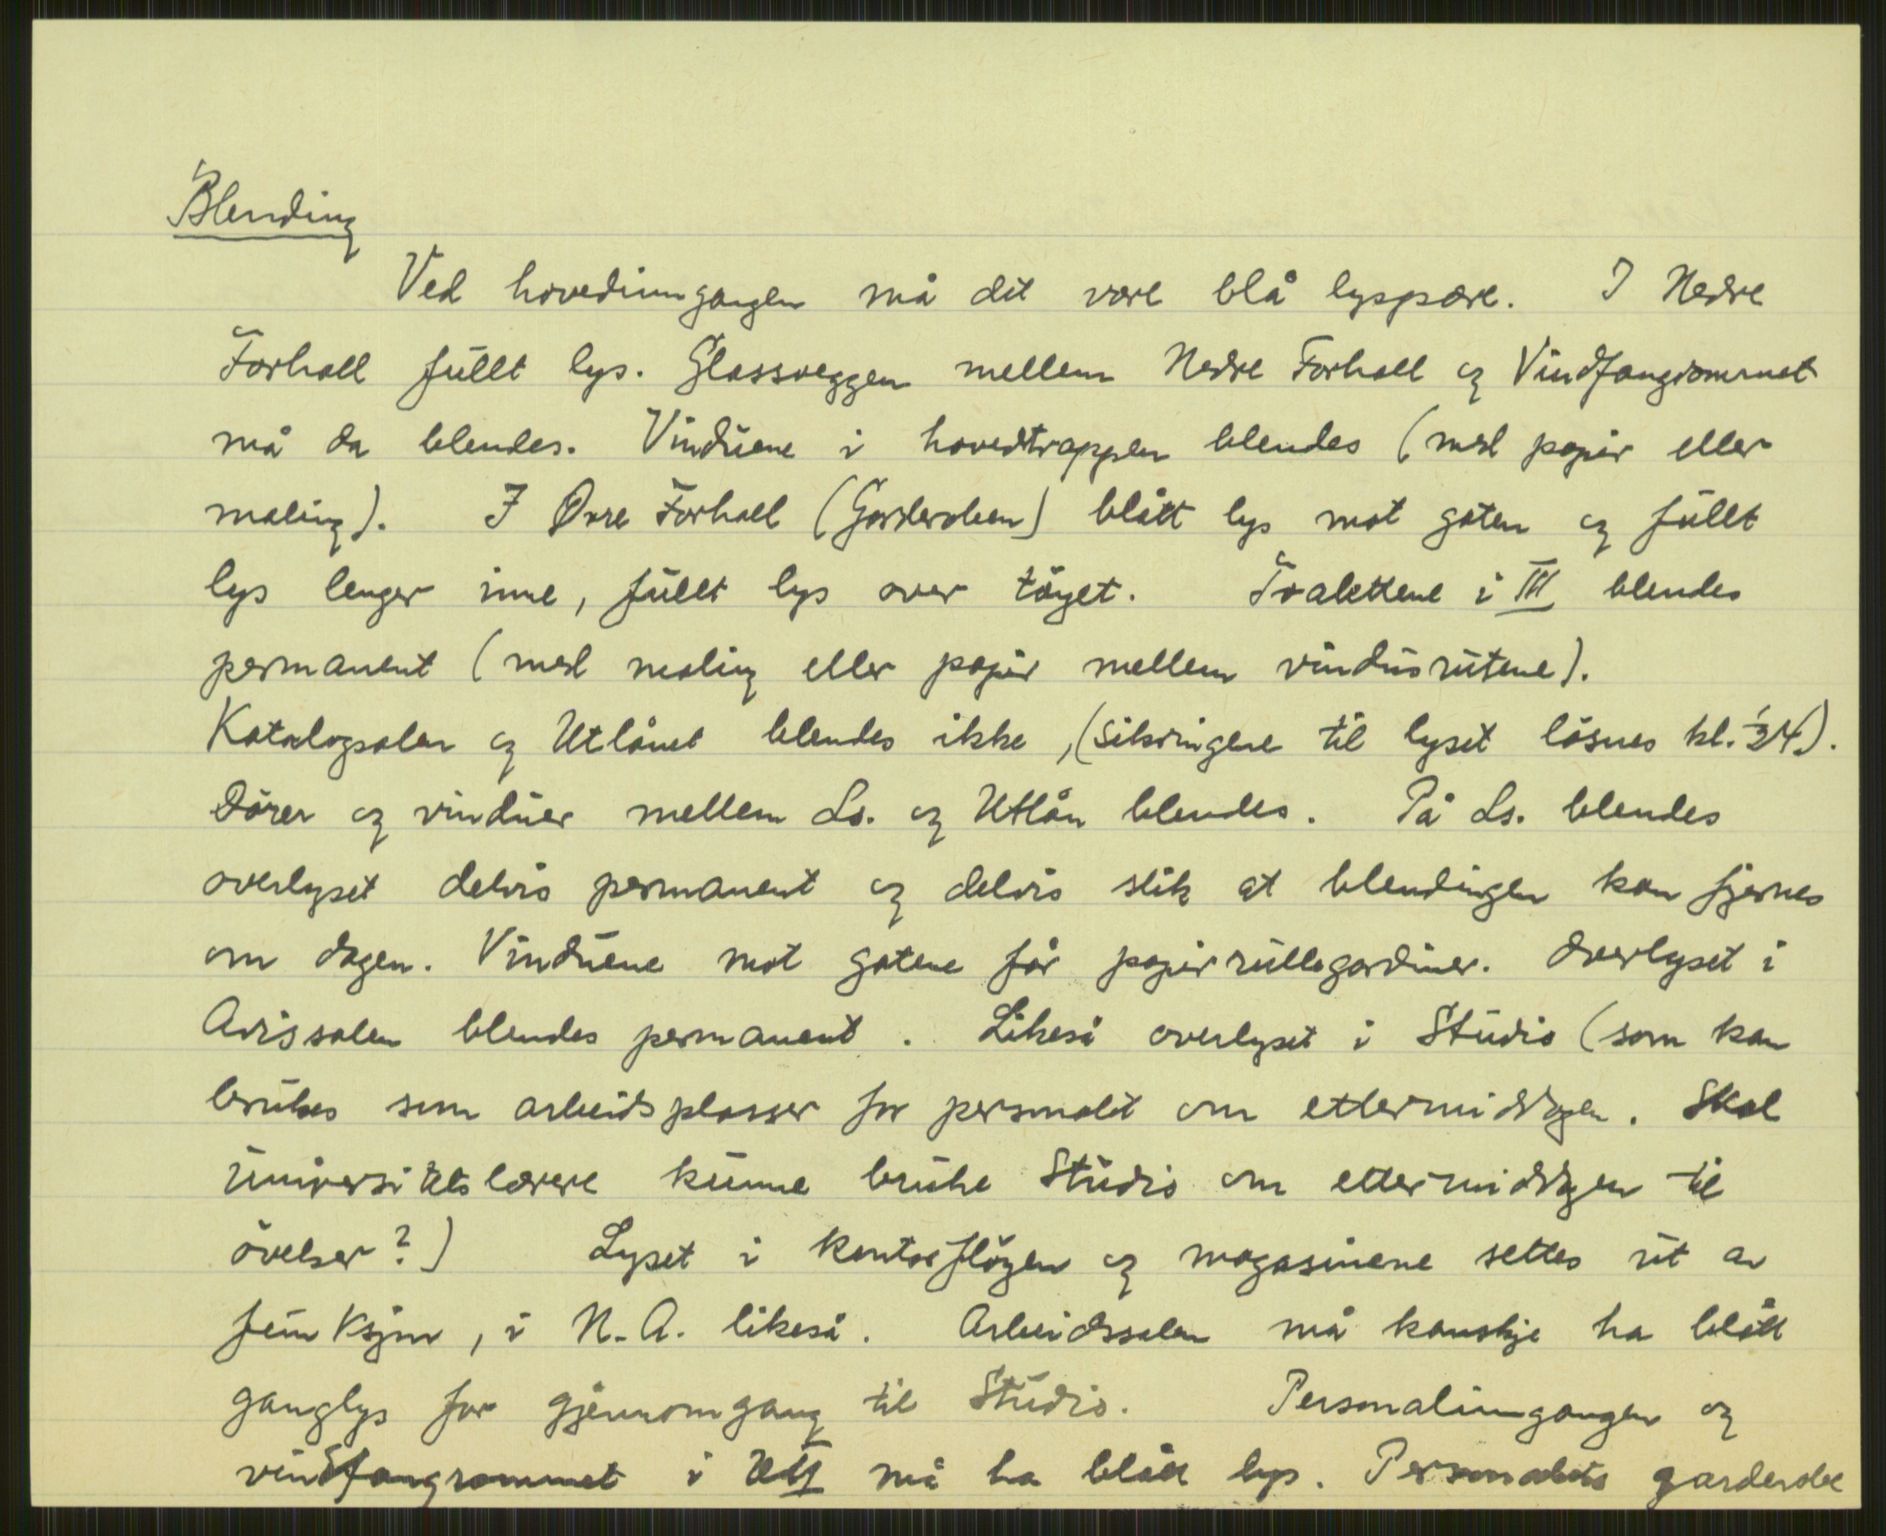 Blending
Ved hovedinngangen må det være blå lyspære. I Nedre
Forhall fullt lys. Glassveggen mellem Nedre Forhall og Vindfangrommet
må da blendes. Vinduene i hovedtrappen blendes (med papir eller
maling). I Øvre Forhall (Garderoben) blått lys mot gaten og fullt
lys lenger inne, fullt lys over töyet. Toalettene i III blendes
permanent (med maling eller papir mellem vindusrutene).
Katalogsalen og Utlånet blendes ikke, (sikringene til lyset lösnes kl. ½4).
Dörer og vinduer mellem Ls. og Utlån blendes. På Ls. blendes
overlyset delvis permanent og delvis slik at blendingen kan fjernes
om dagen. Vinduene mot gatene får papirrullegardiner. Overlyset i
Avissalen blendes permanent. Likeså overlyset i Studio (som kan
brukes som arbeidsplasser for personalet om ettermiddagen. Skal
universitetslærere kunne bruke Studio om ettermiddagen til
övelser?) Lyset i kontorflöyen og magasinene settes ut av
funksjon, i N.A. likeså. Arbeidssalen må kanskje ha blått
ganglys for gjennomgang til Studio. Personalinngangen og
vindfangrommet i må ha blått lys. Personalets garderobe